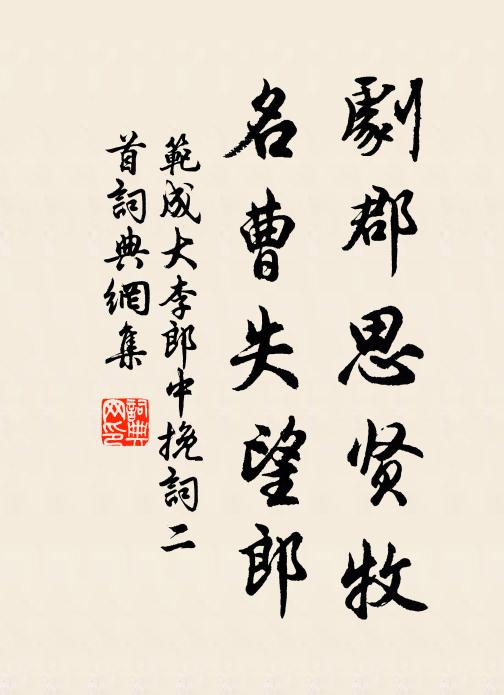 劇郡思贤牧
名曹失望郎
範成大李郎中挽詞二
首詞典網集
詞典
网印